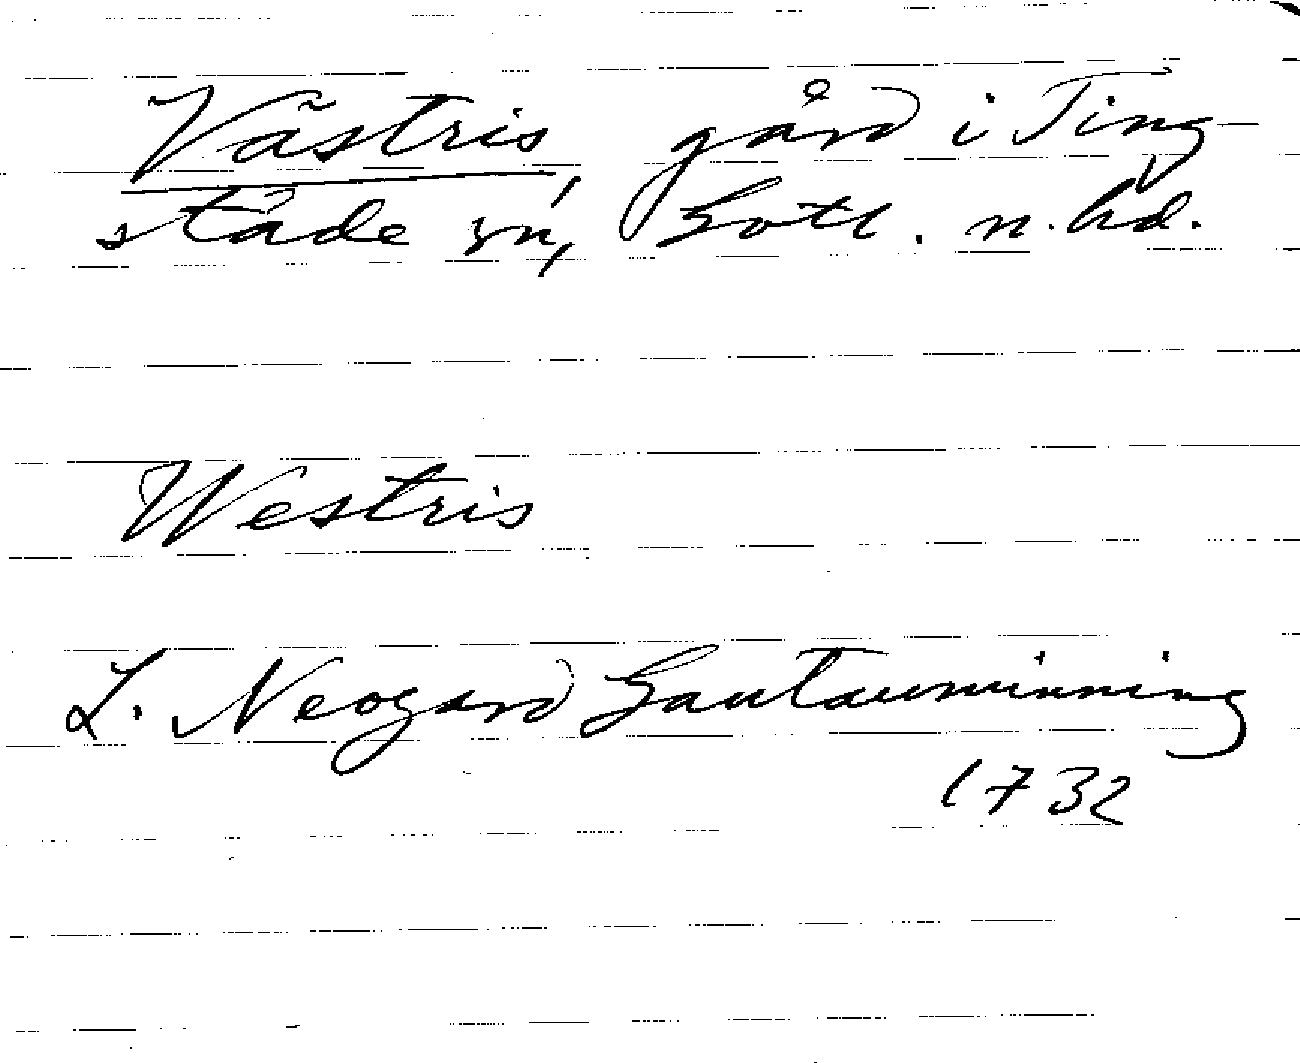 Västris, gård i Ting-
städe sn, Gotl. n. hd.
Westris
L. Neogard Gautauminning
1732